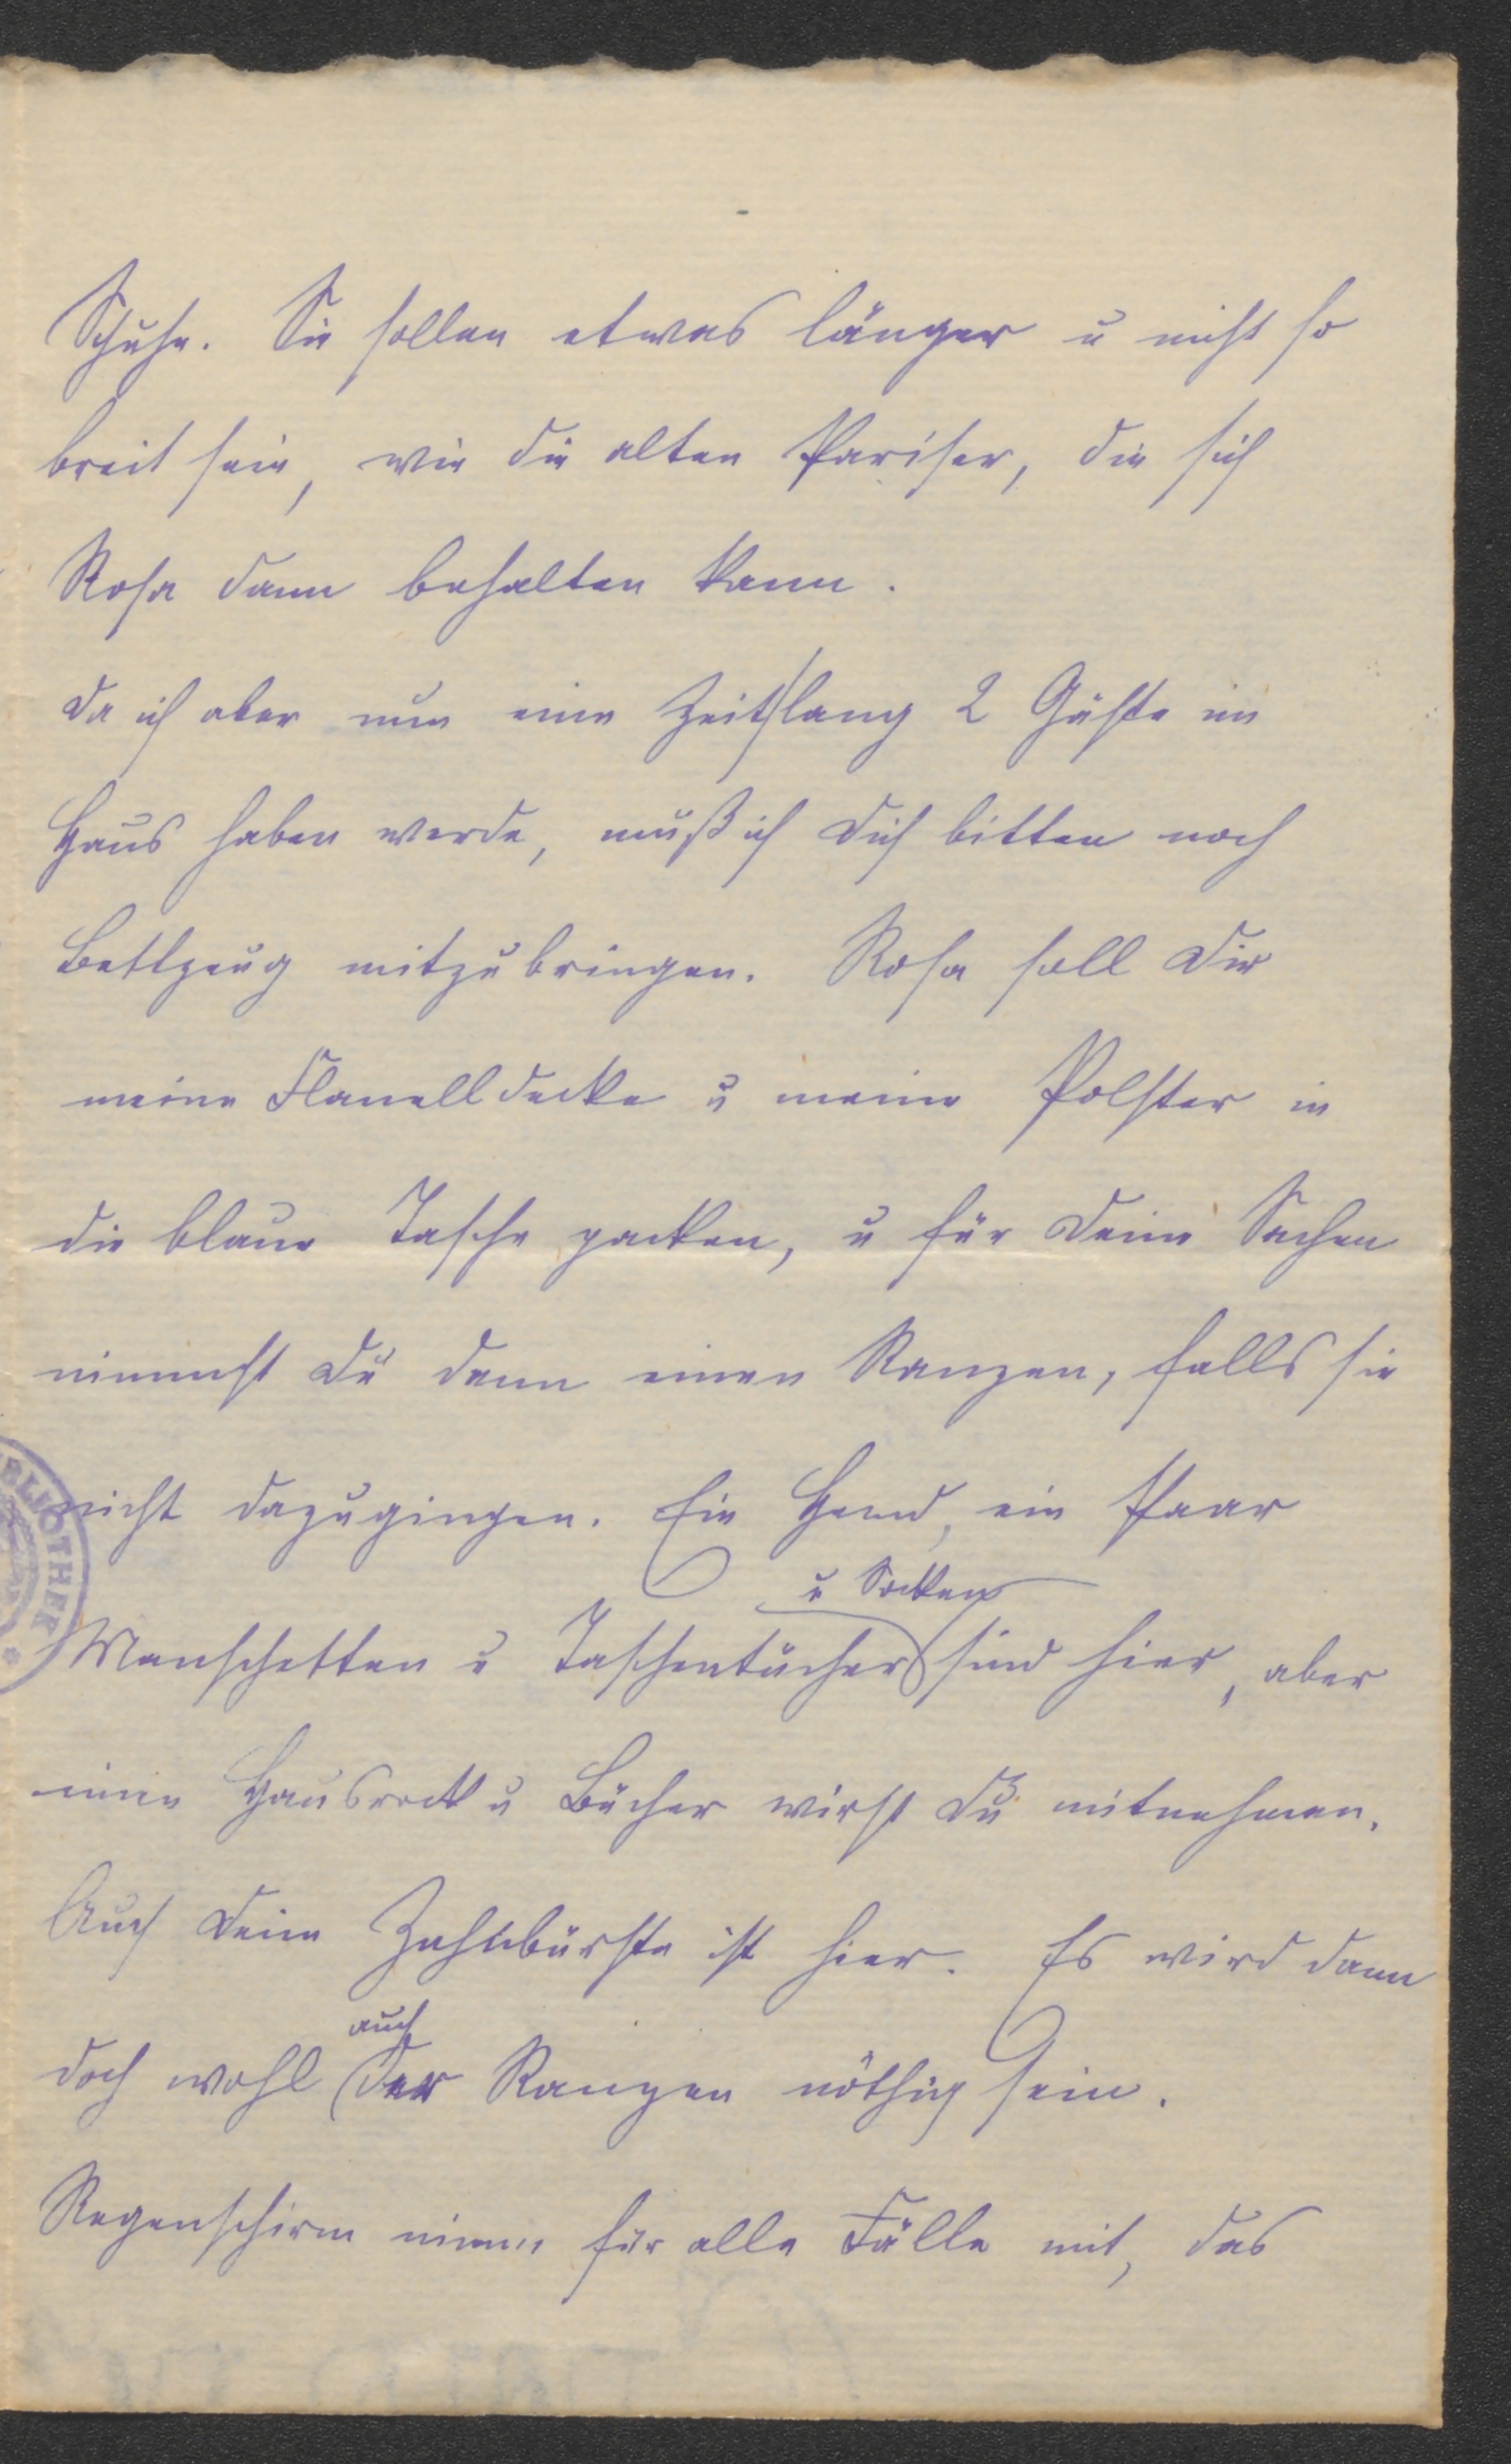 Schuhe. Sie sollen etwas länger u nicht so
breit sein, wie die alten Pariser, die sich
Rosa dann behalten kann.
Da ich aber nun eine Zeit lang 2 Gäste im
Haus haben werde, muß ich Dich bitten noch
Bettzeug mitzubringen. Rosa soll Dir
meine Flanelldecke u meine Polster in
die blaue Tasche packen, u für Deine Sachen
nimmst Du dann einen Ranzen, falls sie
nicht dazugingen. Ein Hemd, ein Paar
u Socken
Manschetten u Taschentücher sind hier, aber
einen Hausrock u Bücher wirst Du mitnehmen.
Auch Deine Zahnbürste ist hier. Es wird dann
auch
doch wohl der Ranzen nöthig sein.
Regenschirm nimm für alle Fälle mit, das
BLIOTHEK